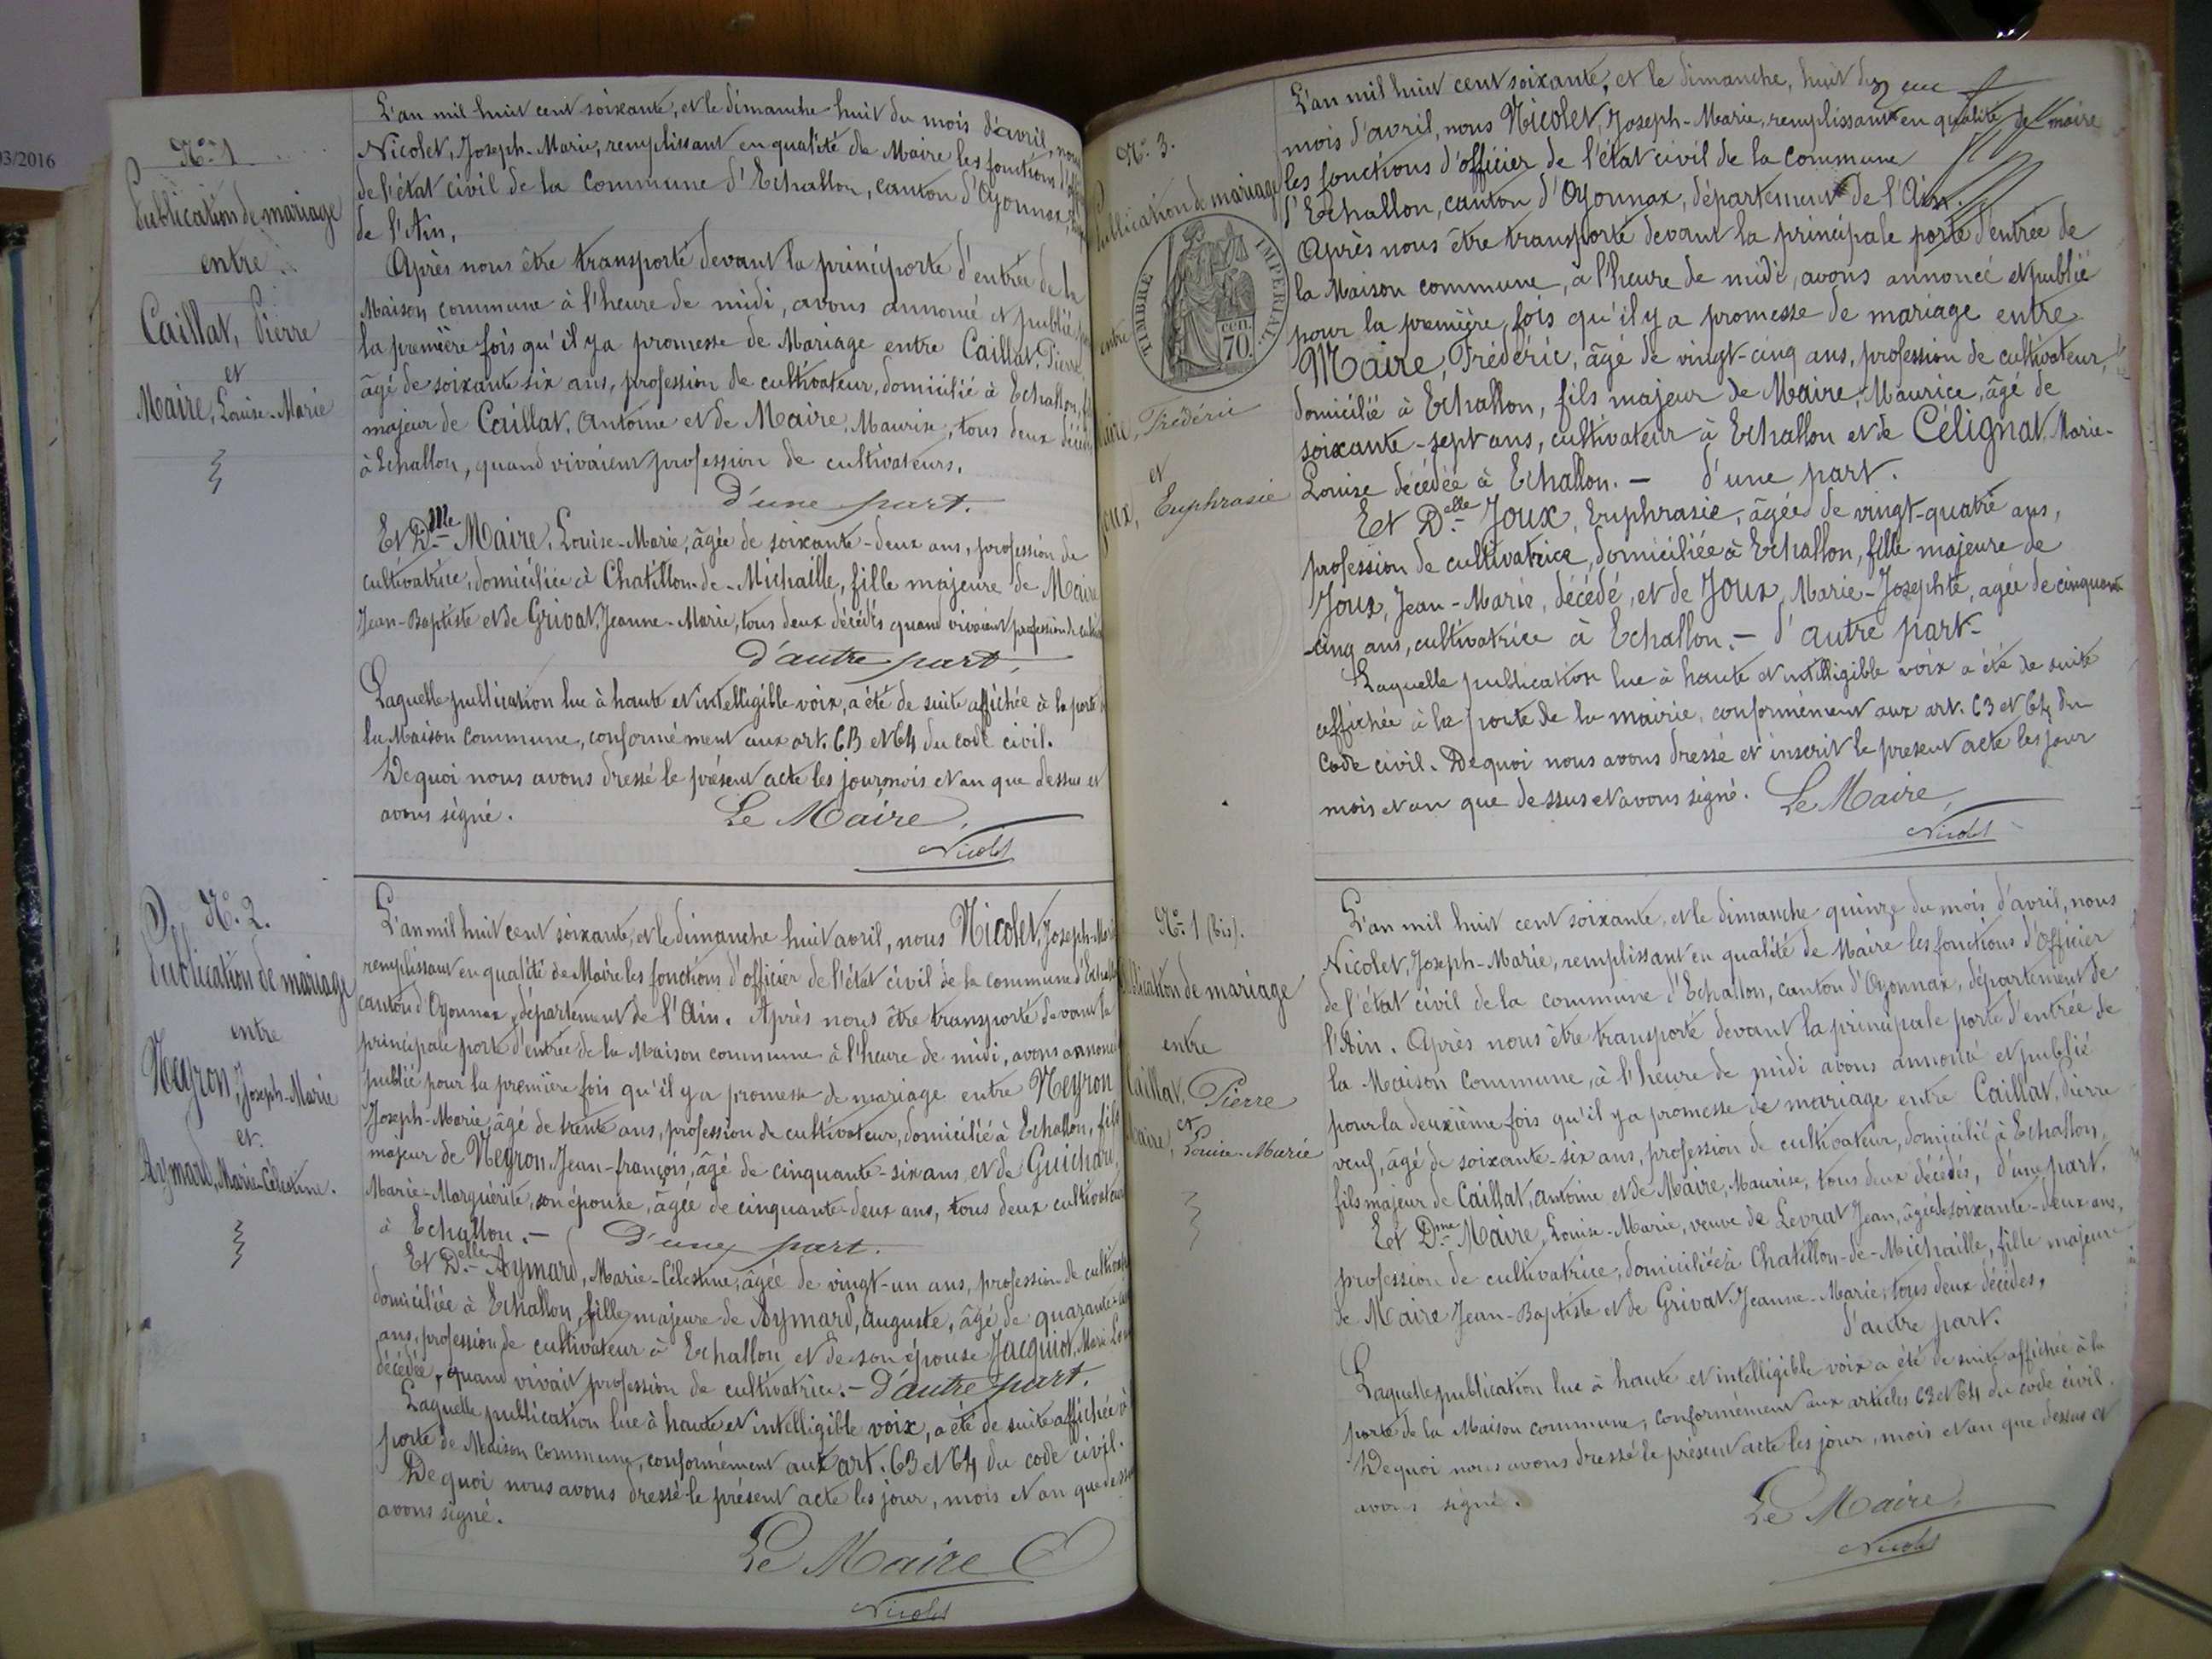 03/2016
N.° 1
Publication de mariage
entre
Caillat, Pierre
et
Maire, Louise-Marie
L'an mil huit cent soixante, et le dimanche huit du mois d'avril, nous
Nicolet, Joseph-Marie, remplissant en qualité de Maire les fonctions
de l'état civil de la commune d'Echallon, canton d'Oyonnax,
de l'Ain.
Après nous être transporté devant la principorte d'entrée de la
Maison commune à l'heure de midi, avons annoncé et publié
la première fois qu'il y a promesse de Mariage entre Caillat, Pierre
âgé de soixante six ans, profession de cultivateur, domicilié à Echallon,
majeur de Caillat, Antoine et de Maire, Maurise, tous deux décédés
à Echallon, quand vivaient profession de cultivateurs.
d'une part.
Et D.me Maire, Louise-Marie, âgée de soixante-deux ans, profession de
cultivatrice, domiciliée à Chatillon-de-Michaille, fille majeure de Maire
Jean-Baptiste et de Grivat, Jeanne-Marie, tous deux décédés quand vivaient profession de
d'autre part.
Laquelle publication lue à haute et intelligible voix, a été de suite affichée à la porte
la Maison commune, conformément aux art. 63 et 64 du code civil.
De quoi nous avons dressé le présent acte les jour mois et an que dessus et
avons signé. Le Maire,
Nicolet
N.° 2.
Publication de mariage
entre
Neyron, Joseph-Marie
et
Aymard, Marie-Célestine.
L'an mil huit cent soixante, et le dimanche huit avril, nous Nicolet, Joseph-Marie
remplissant en qualité de Maire les fonctions d'officier de l'état civil de la commune d'Echallon
canton d'Oyonnax, département de l'Ain. Après nous être transporté devant la
principale porte d'entrée de la Maison commune à l'heure de midi, avons annoncé
publié pour la première fois qu'il y a promesse de mariage entre Neyron
Joseph-Marie, âgé de trente ans, profession de cultivateur, domicilié à Echallon, fils
majeur de Neyron, Jean-françois, âgé de cinquante-six ans, et de Guichard,
Marie-Marguérite, son épouse, âgée de cinquante-deux ans, tous deux cultivateurs
à Echallon. — D'une part.
Et D.elle Aymard, Marie-Célestine, âgée de vingt-un ans, profession de
domiciliée à Echallon, fille majeure de Aymard, Auguste, âgé de quarante
ans, profession de cultivateur à Echallon et de son épouse Jacquiot, Marie
décédée, quand vivait profession de cultivatrice. — D'autre part.
Laquelle publication lue à haute et intelligible voix, a été de suite affichée à
porte de Maison commune, conformément aux art. 63 et 64 du code civil.
De quoi nous avons dressé le présent acte les jour, mois et an que dessus
avons signé.
Le Maire
Nicolet
N.° 3.
Publication de mariage
TIMBRE IMPERIAL
cen. 70.
entre
Maire, Frédéric
et
Joux, Euphrasie
L'an mil huit cent soixante, et le dimanche, huit du
mois d'avril, nous Nicolet, Joseph-Marie, remplissant en qualité de maire
les fonctions d'officier de l'état civil de la commune
d'Echallon, canton d'Oyonnax, département de l'Ain.
Après nous être transporté devant la principale porte d'entrée de
la Maison commune, à l'heure de midi, avons annoncé et publié
pour la première fois qu'il y a promesse de mariage entre
Maire, Frédéric, âgé de vingt-cinq ans, profession de cultivateur,
domicilié à Echallon, fils majeur de Maire, Maurice, âgé de
soixante-sept ans, cultivateur à Echallon et de Célignat, Marie-
Louise décédée à Echallon. — d'une part.
Et D.elle Joux, Euphrasie, âgée de vingt-quatre ans,
profession de cultivatrice, domiciliée à Echallon, fille majeure de
Joux, Jean-Marie, décédé, et de Joux, Marie-Josephte, agée de cinquante
-cinq ans, cultivatrice à Echallon. — d'autre part.
Laquelle publication lue à haute et intelligible voix a été de suite
affichée à la porte de la mairie, conformément aux art. 63 et 64 du
Code civil. De quoi nous avons dressé et inscrit le present acte les jour
mois et an que dessus et avons signé. Le Maire,
Nicolet
N.° 1 (bis).
Publication de mariage
entre
Caillat, Pierre
et
Maire, Louise-Marie
L'an mil huit cent soixante, et le dimanche quinze du mois d'avril, nous
Nicolet, Joseph-Marie, remplissant en qualité de Maire les fonctions d'officier
de l'état civil de la commune d'Echallon, canton d'Oyonnax, département de
l'Ain. Après nous être transporté devant la principale porte d'entrée de
la Maison Commune, à l'heure de midi avons annoncé et publié
pour la deuxième fois qu'il y a promesse de mariage entre Caillat, Pierre
veuf, âgé de soixante-six ans, profession de cultivateur, domicilié à Echallon,
fils majeur de Caillat, Antoine et de Maire, Maurise, tous deux décédés, d'une part.
Et D.me Maire, Louise-Marie, veuve de Levrat Jean, âgée de soixante-deux ans,
profession de cultivatrice, domiciliée à Chatillon-de-Michaille, fille majeure
de Maire Jean-Baptiste et de Grivat, Jeanne-Marie, tous deux décédés,
d'autre part.
Laquelle publication lue à haute et intelligible voix a été de suite affichée à la
porte de la Maison commune, conformément aux articles 63 et 64 du code civil.
De quoi nous avons dressé le présent acte les jour, mois et an que dessus et
avons signé. Le Maire,
Nicolet